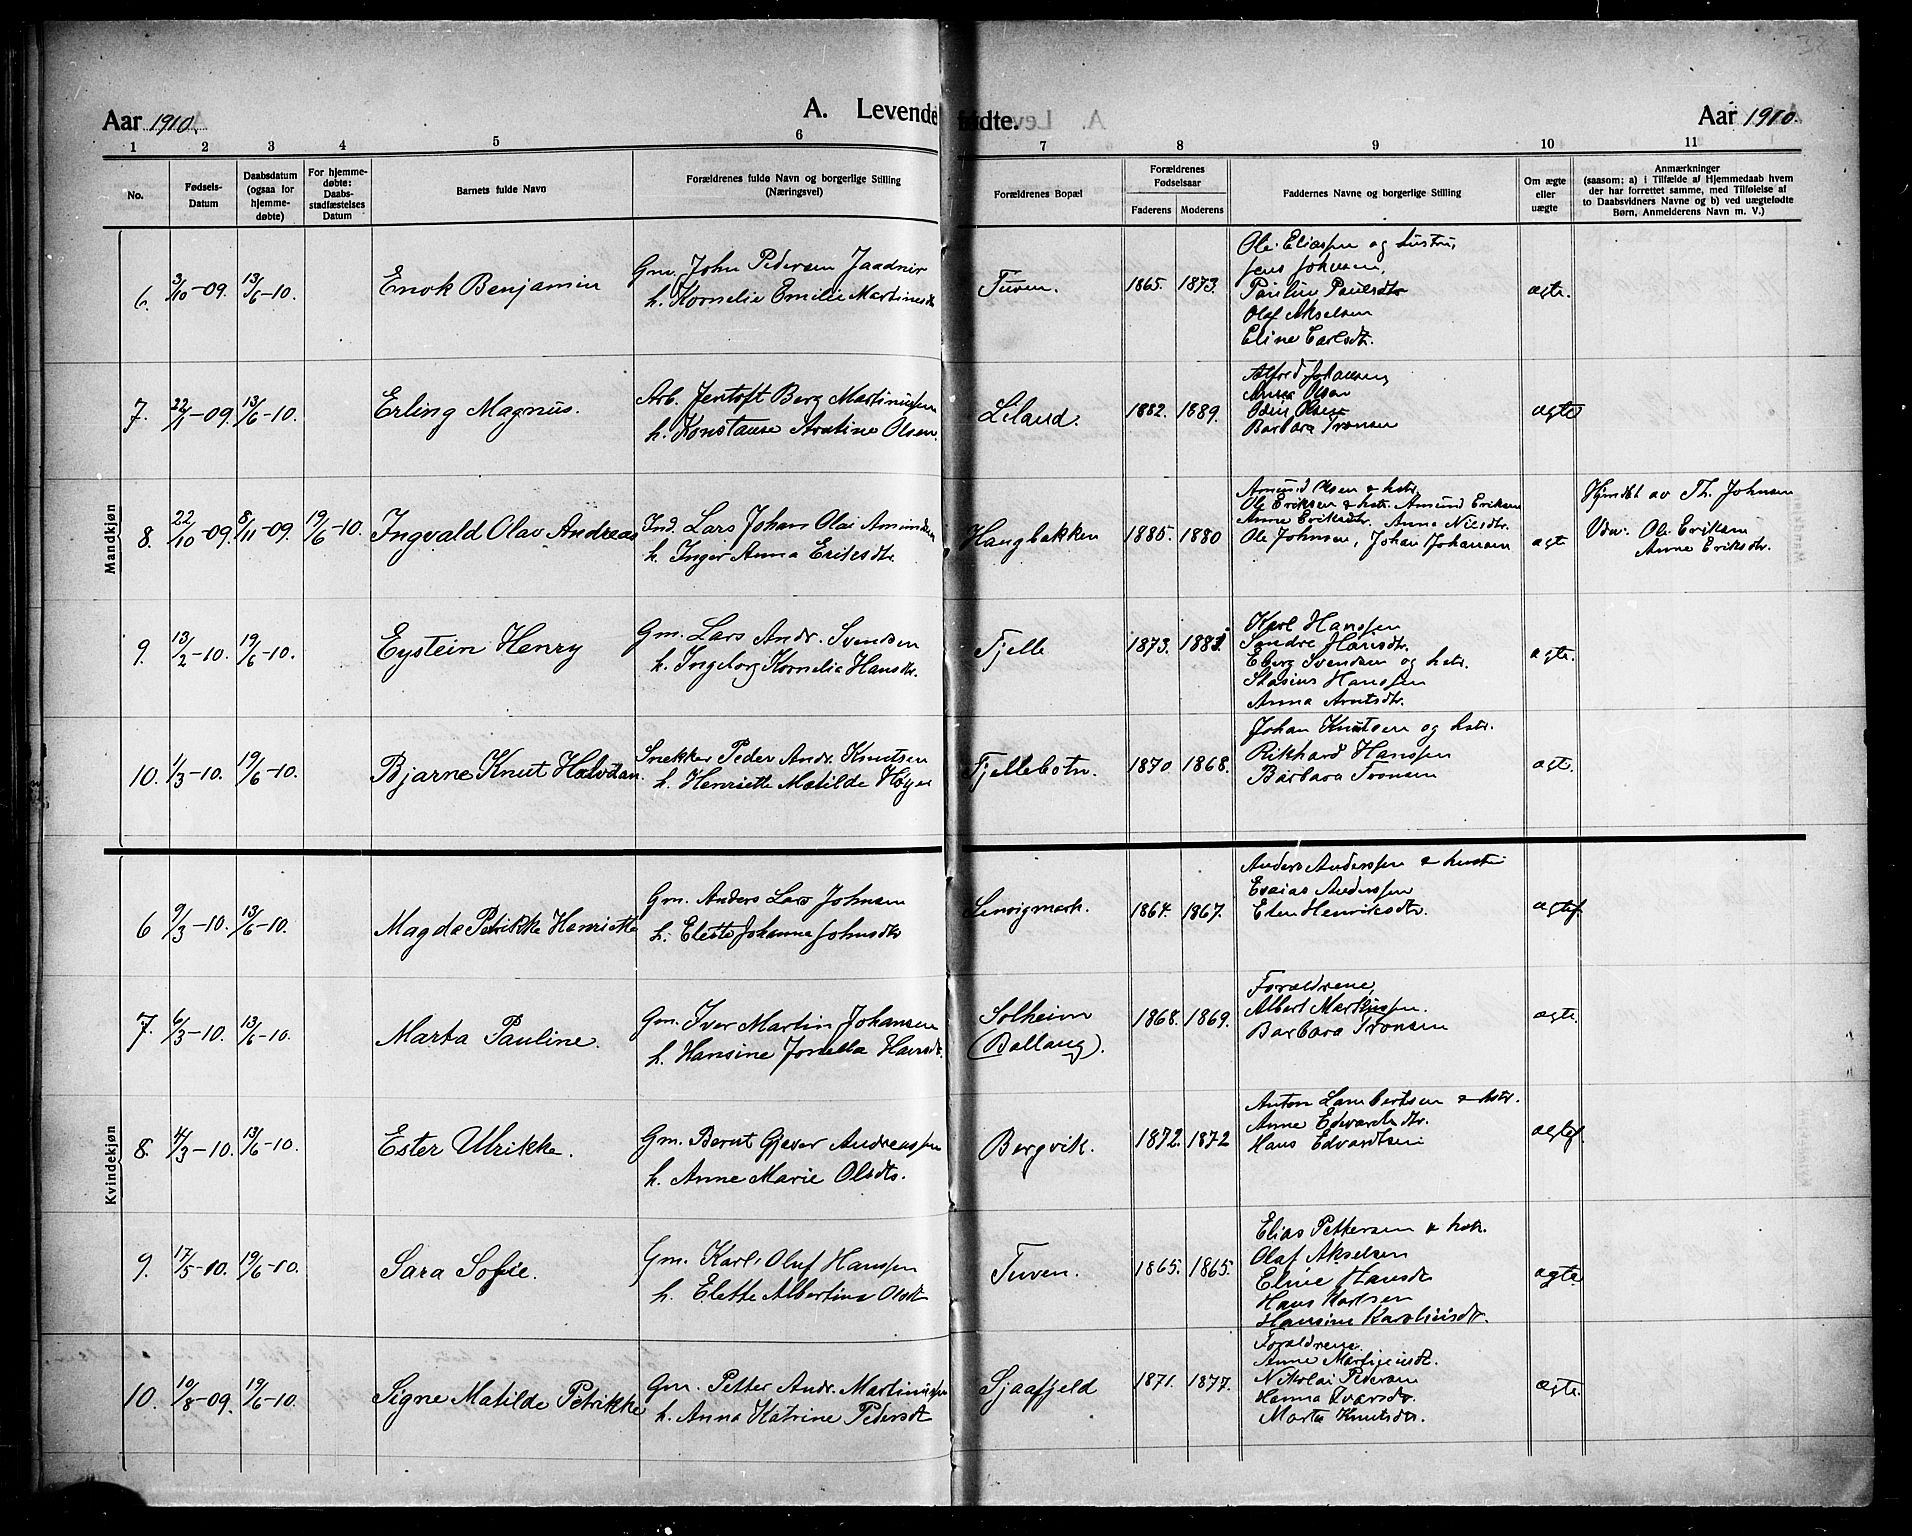 Aar 1910. A. Levendefødte. Aar 1910.
1 2 3 4 5 6 7 8 9 10 11
No. Fødsels-Datum Daabsdatum (ogsaa for hjemmedøbte) For hjemmedøbte: Daabsstadfæstelses Datum Barnets fulde Navn Forældrenes fulde Navn og borgerlige Stilling (Næringsvei) Forældrenes Bopæl Forældrenes Fødselsaar Faderens Moderens Faddernes Navne og borgerlige Stilling Om ægte eller uægte Anmærkninger (saasom: a) i Tilfælde af Hjemmedaab hvem der har forrettet samme, med Tilføielse af to Daabsvidners Navne og b) ved uægtefødte Børn, Anmelderens Navn m. V.)
Mandkjøn
6. 3/10-09. 13/6-10. Enok Benjamin Gm. John Pedersen Jaadnir
h. Kornelie Emilie Martinesdtr Tuven. 1865. 1873. Ole Eliassen og hustru,
Jens Johnsen,
Pauline Paulsdtr
Olaf Akselsen
Eline Carlsdtr. ægte.
7. 22/1-09. 13/6-10. Erling Magnus. Arb. Jentoft Berg Martinussen
h. Konstanse Arntine Olsen. Liland. 1882. 1889. Alfred Johansen,
Anna Olsen
Odin Olsen
Barbara Tronsen ægte
8. 22/10-09. 8/11-09. 19/6-10. Ingvald Olav Andreas Ind. Lars Johan Olai Amundsen
h. Inger Anna Eriksdtr. Haugbakken 1885. 1880 Amund Olsen & hstr.
Ole Eriksen & hstr. Amund Eriksen
Anne Eriksdtr. Anna Nilsdtr.
Ole Johnsen, Johan Johansen ægte Hjmdbt av Th. Johnsen
Vdn: Ole Eriksen
Anne Eriksdtr.
9. 13/2-10. 19/6-10. Eystein Henry Gm. Lars Andr. Svendsen
h. Ingeborg Kornelia Hansdtr. Fjelle 1873. 1881 Karl Hanssen
Sendre Hansdtr.
Eberg Svendsen og hstr.
Stasius Hanssen
Anna Arntsdtr. ægte.
10. 1/3-10. 19/6-10. Bjarne Knut Halvdan. Snekker Peder Andr. Knutsen
h. Henriette Matilde Høyer Fjellebotn. 1870 1868. Johan Knutsen og hstr.
Rikhard Hanssen
Barbara Tronsen ægte.
Kvindekjøn
6 9/3-10. 13/6-10. Magda Petrikke Henriette Gm. Anders Lars Johnsen
h. Elette Johanna Johnsdtr Lenvigmark. 1864. 1867. Anders Anderssen & hustru
Esaias Anderssen
Elen Henriksdtr. ægtef.
7. 6/3-10. 13/6-10. Marta Pauline. Gm. Iver Martin Johansen
h. Hansine Jonella Hansdtr. Solheim
(Ballang). 1868. 1869. Forældrene,
Albert Markussen.
Barbara Tronsen ægte.
8. 4/3-10. 13/6-10. Ester Ulrikke. Gm. Bernt Gjever Andreassen
h. Anne Marie Olsdtr. Bergvik. 1872. 1872 Anton Lambertsen & hstr.
Anne Edvardsdtr.
Hans Edvardtsen ægtef.
9. 17/5-10. 19/6-10. Sara Sofie. Gm. Karl Oluf Hanssen
h. Elette Albertine Olsdtr Tuven. 1865. 1865. Elias Pettersen & hstr.
Olaf Akselsen
Eline Hansdtr
Hans Karlsen
Hansine Karolinsdtr. ægte.
10. 10/8-09. 19/6-10. Signe Matilde Petrikke Gm. Petter Andr. Martinussen
h. Anna Katrine Pedersdtr Sjaafjeld 1871. 1877. Forældrene
Anne Martinusdtr.
Nikolai Pedersen
Hanna Ivarsdtr
Marta Knutsdtr. ægte.